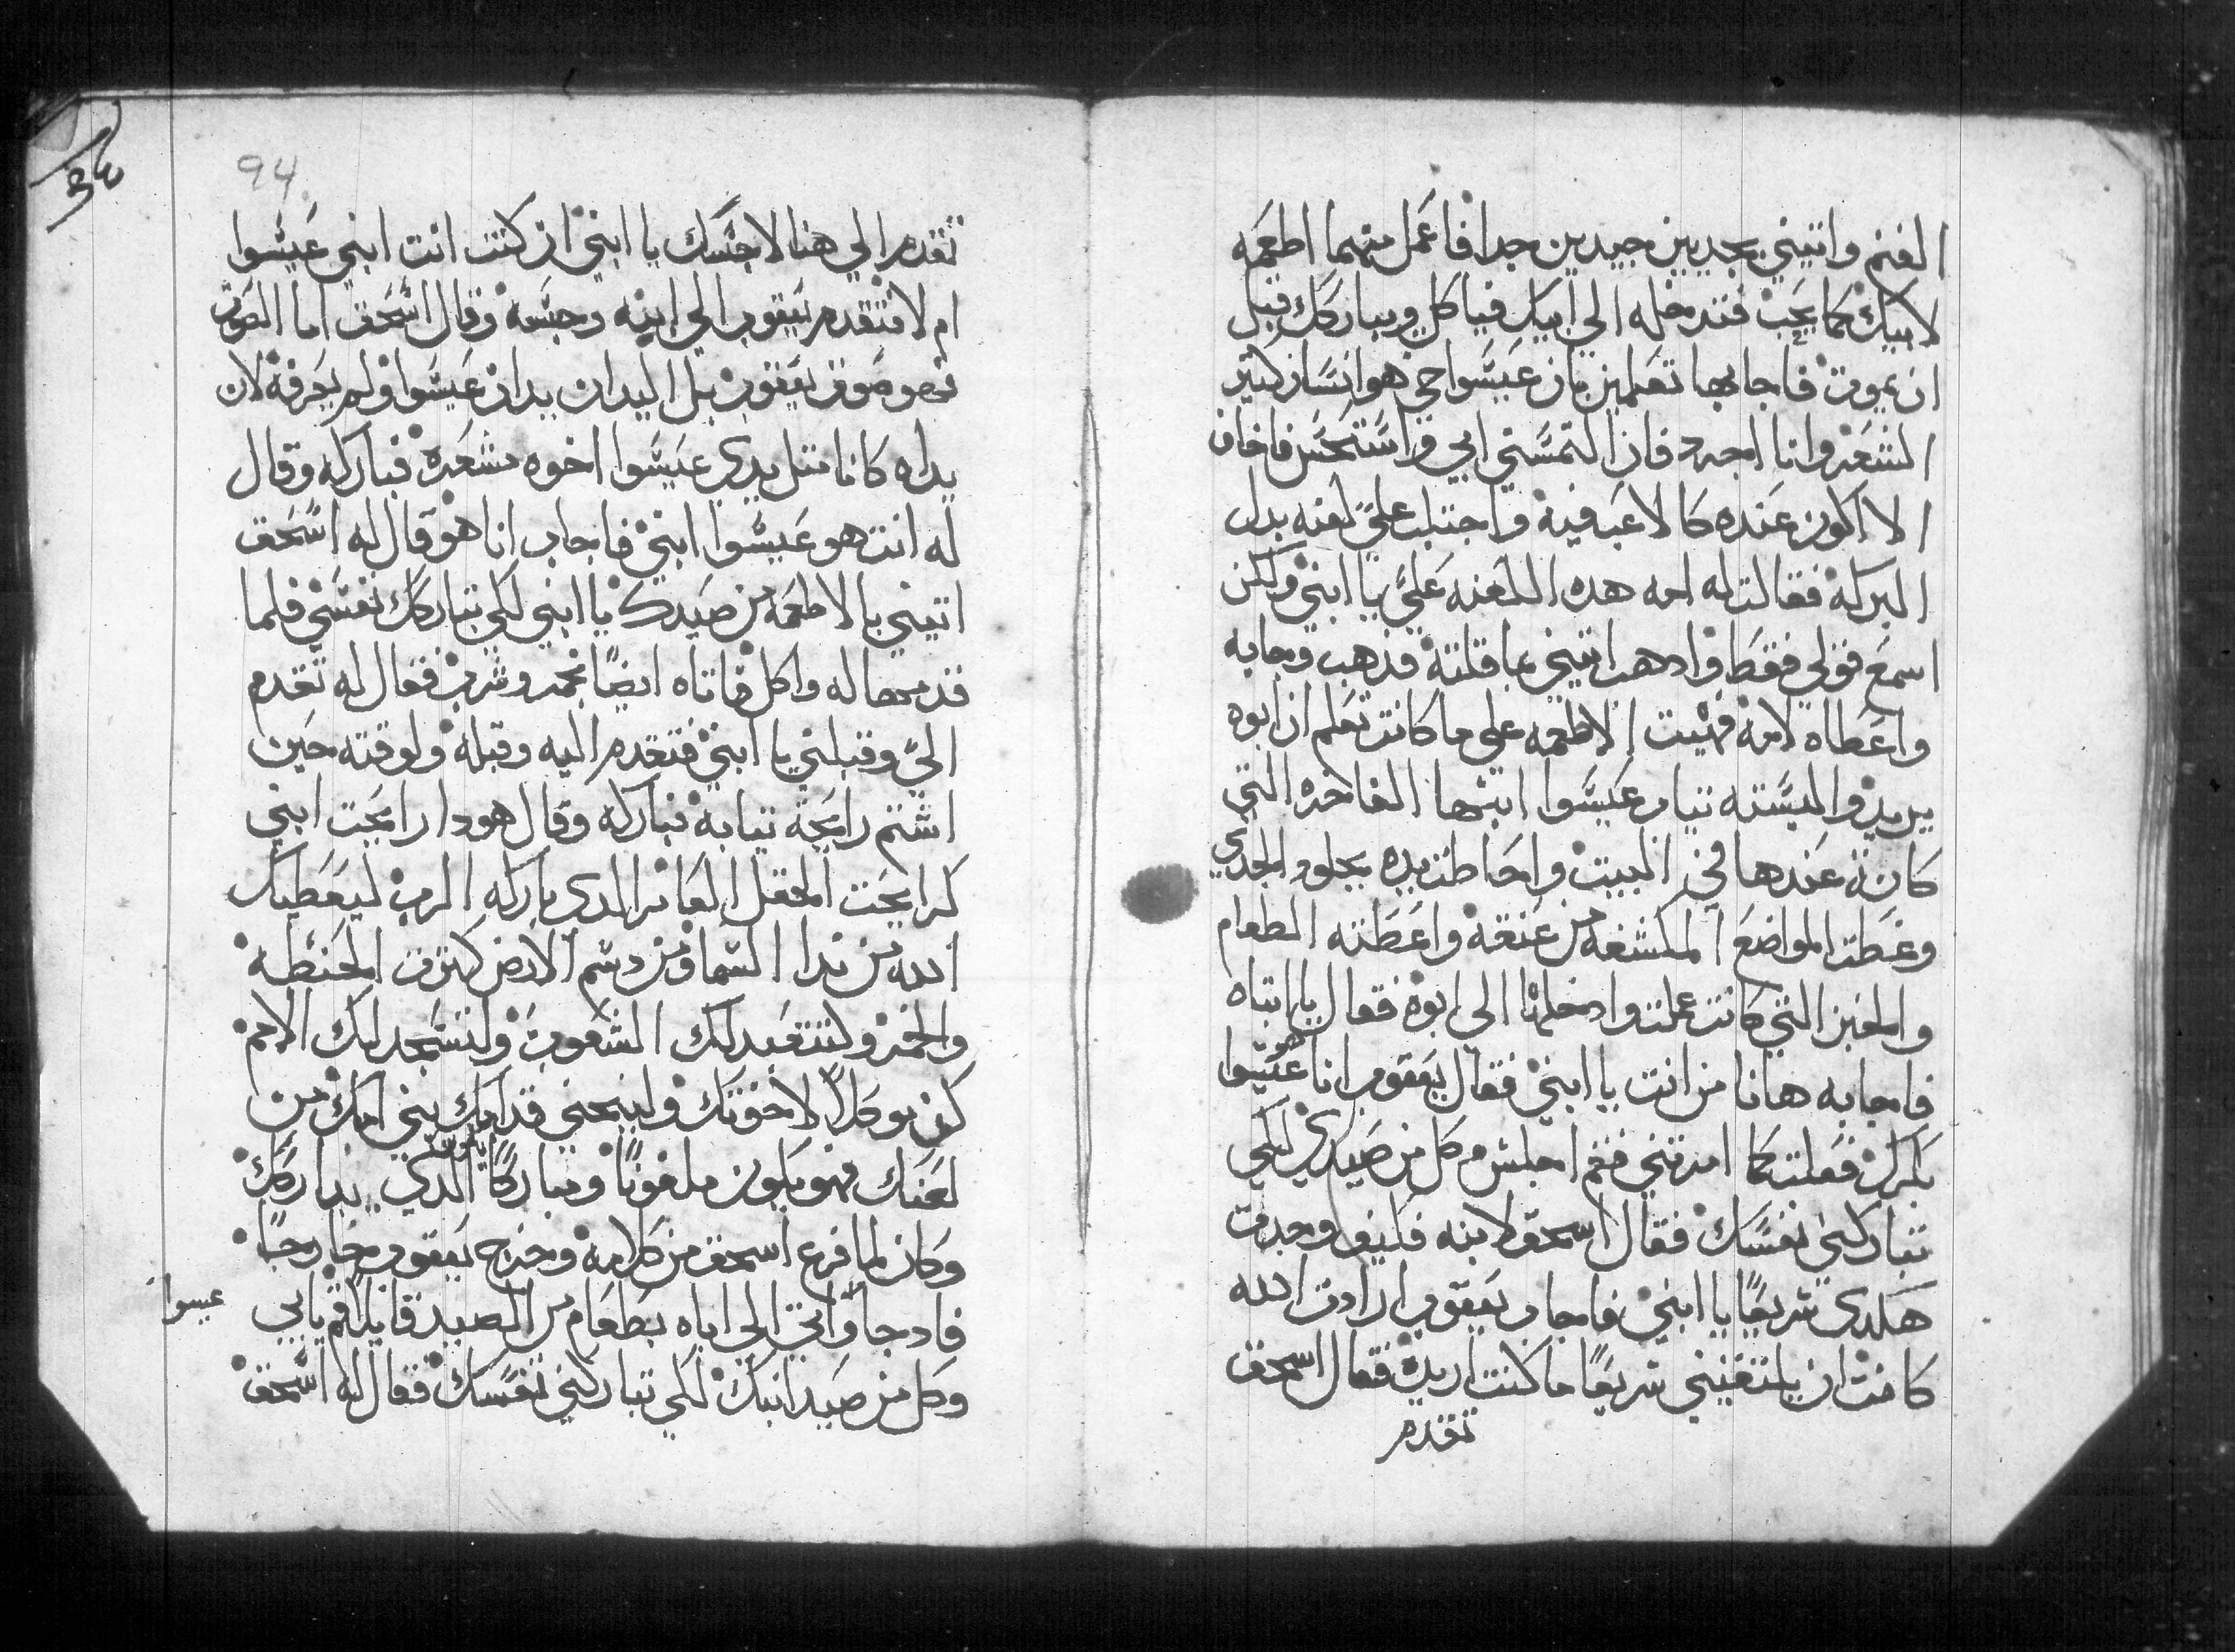 الغنم واتيني بجديين جيدين جدا فاعمل منهما اطعمه
لابيك كما يحب فتدخله الي ابيك فياكل ويباركك قبل
ان يموت فاجابها تعلمين بان عيسوا اخي هو انسان كتير
الشعر وانا اجرد فان التمسني ابي واستحس فاخاف
الا اكون عنده كالاعب فيه واجتلب علي لعنه بدل
البركه فقالت له امه هده اللعنه علي يا ابني ولكن
اسمع قولي فقط وادهب اتيني بما قلته فدهب وجابه
واعطاه لامه فهيت الاطعمه علي ما كانت تعلم ان ابوه
يريد والبسته تياب عيسوا ابنها الفاخره التي
كانة عندها في البيت واحاطت يده بجلود الجدي
وغطت المواضع المكشفه من عنقه واعطته الطعام
والخبز التي كانت عملت وادخلها الي ابوه فقال يا ابتاه
فاجابه هانا من انت يا ابني فقال يعقوب انا هو عيسوا
بكرك فعلت كما امرتني فقم اجلس وكل من صيدي لكي
تباركني نفسك فقال اسحق لابنه فكيف وجدت
هكدي سريعا يا ابني فاجاب يعقوب ارادت الله
كانت ان يلتقيني سريعا ما كنت اريده فقال اسحق
تقدم
94
تقدم الي هنا لاجسك يا ابني ان كنت انت ابني عيسوا
ام لا فتقدم يعقوب الي ابيه وجسه وقال اسحق اما الصوت
فهو صوت يعقوب بل اليدان يدان عيسوا ولم يعرفه لان
يداه كانا متل يدي عيسوا اخوه مشعره فباركه وقال
له انت هو عيسوا ابني فاجاب انا هو قال له اسحق
اتيني بالاطعمه من صيدك يا ابني لكي تباركك نفسي فلما
قدمها له واكل فاتاه ايضا بخمر وشرب فقال له تقدم
الي وقبلني يا ابني فتقدم اليه وقبله ولوقته حين
اشتم رايحة تيابه فباركه وقال هودا رايحت ابني
كرايحت الحقل العامر الدي باركه الرب ليعطيك
الله من ندا السما ومن دسم الارض كترت الحنطه
والخمر ولتتعبد لك الشعوب ولتسجد لك الامم
كن موكلا لاخوتك ولينحني قدامك بني امك من
لعنك فهو يكون ملعونا ومباركا يكون الدي يباركك
وكان لما فرغ اسحق من كلامه وخرج يعقوب خارجا
فادجا واتي الي اباه بطعام من الصيد قايلا قم يا ابي
عيسوا
وكل من صيد ابنك لكي تباركني نفسك فقال له اسحق